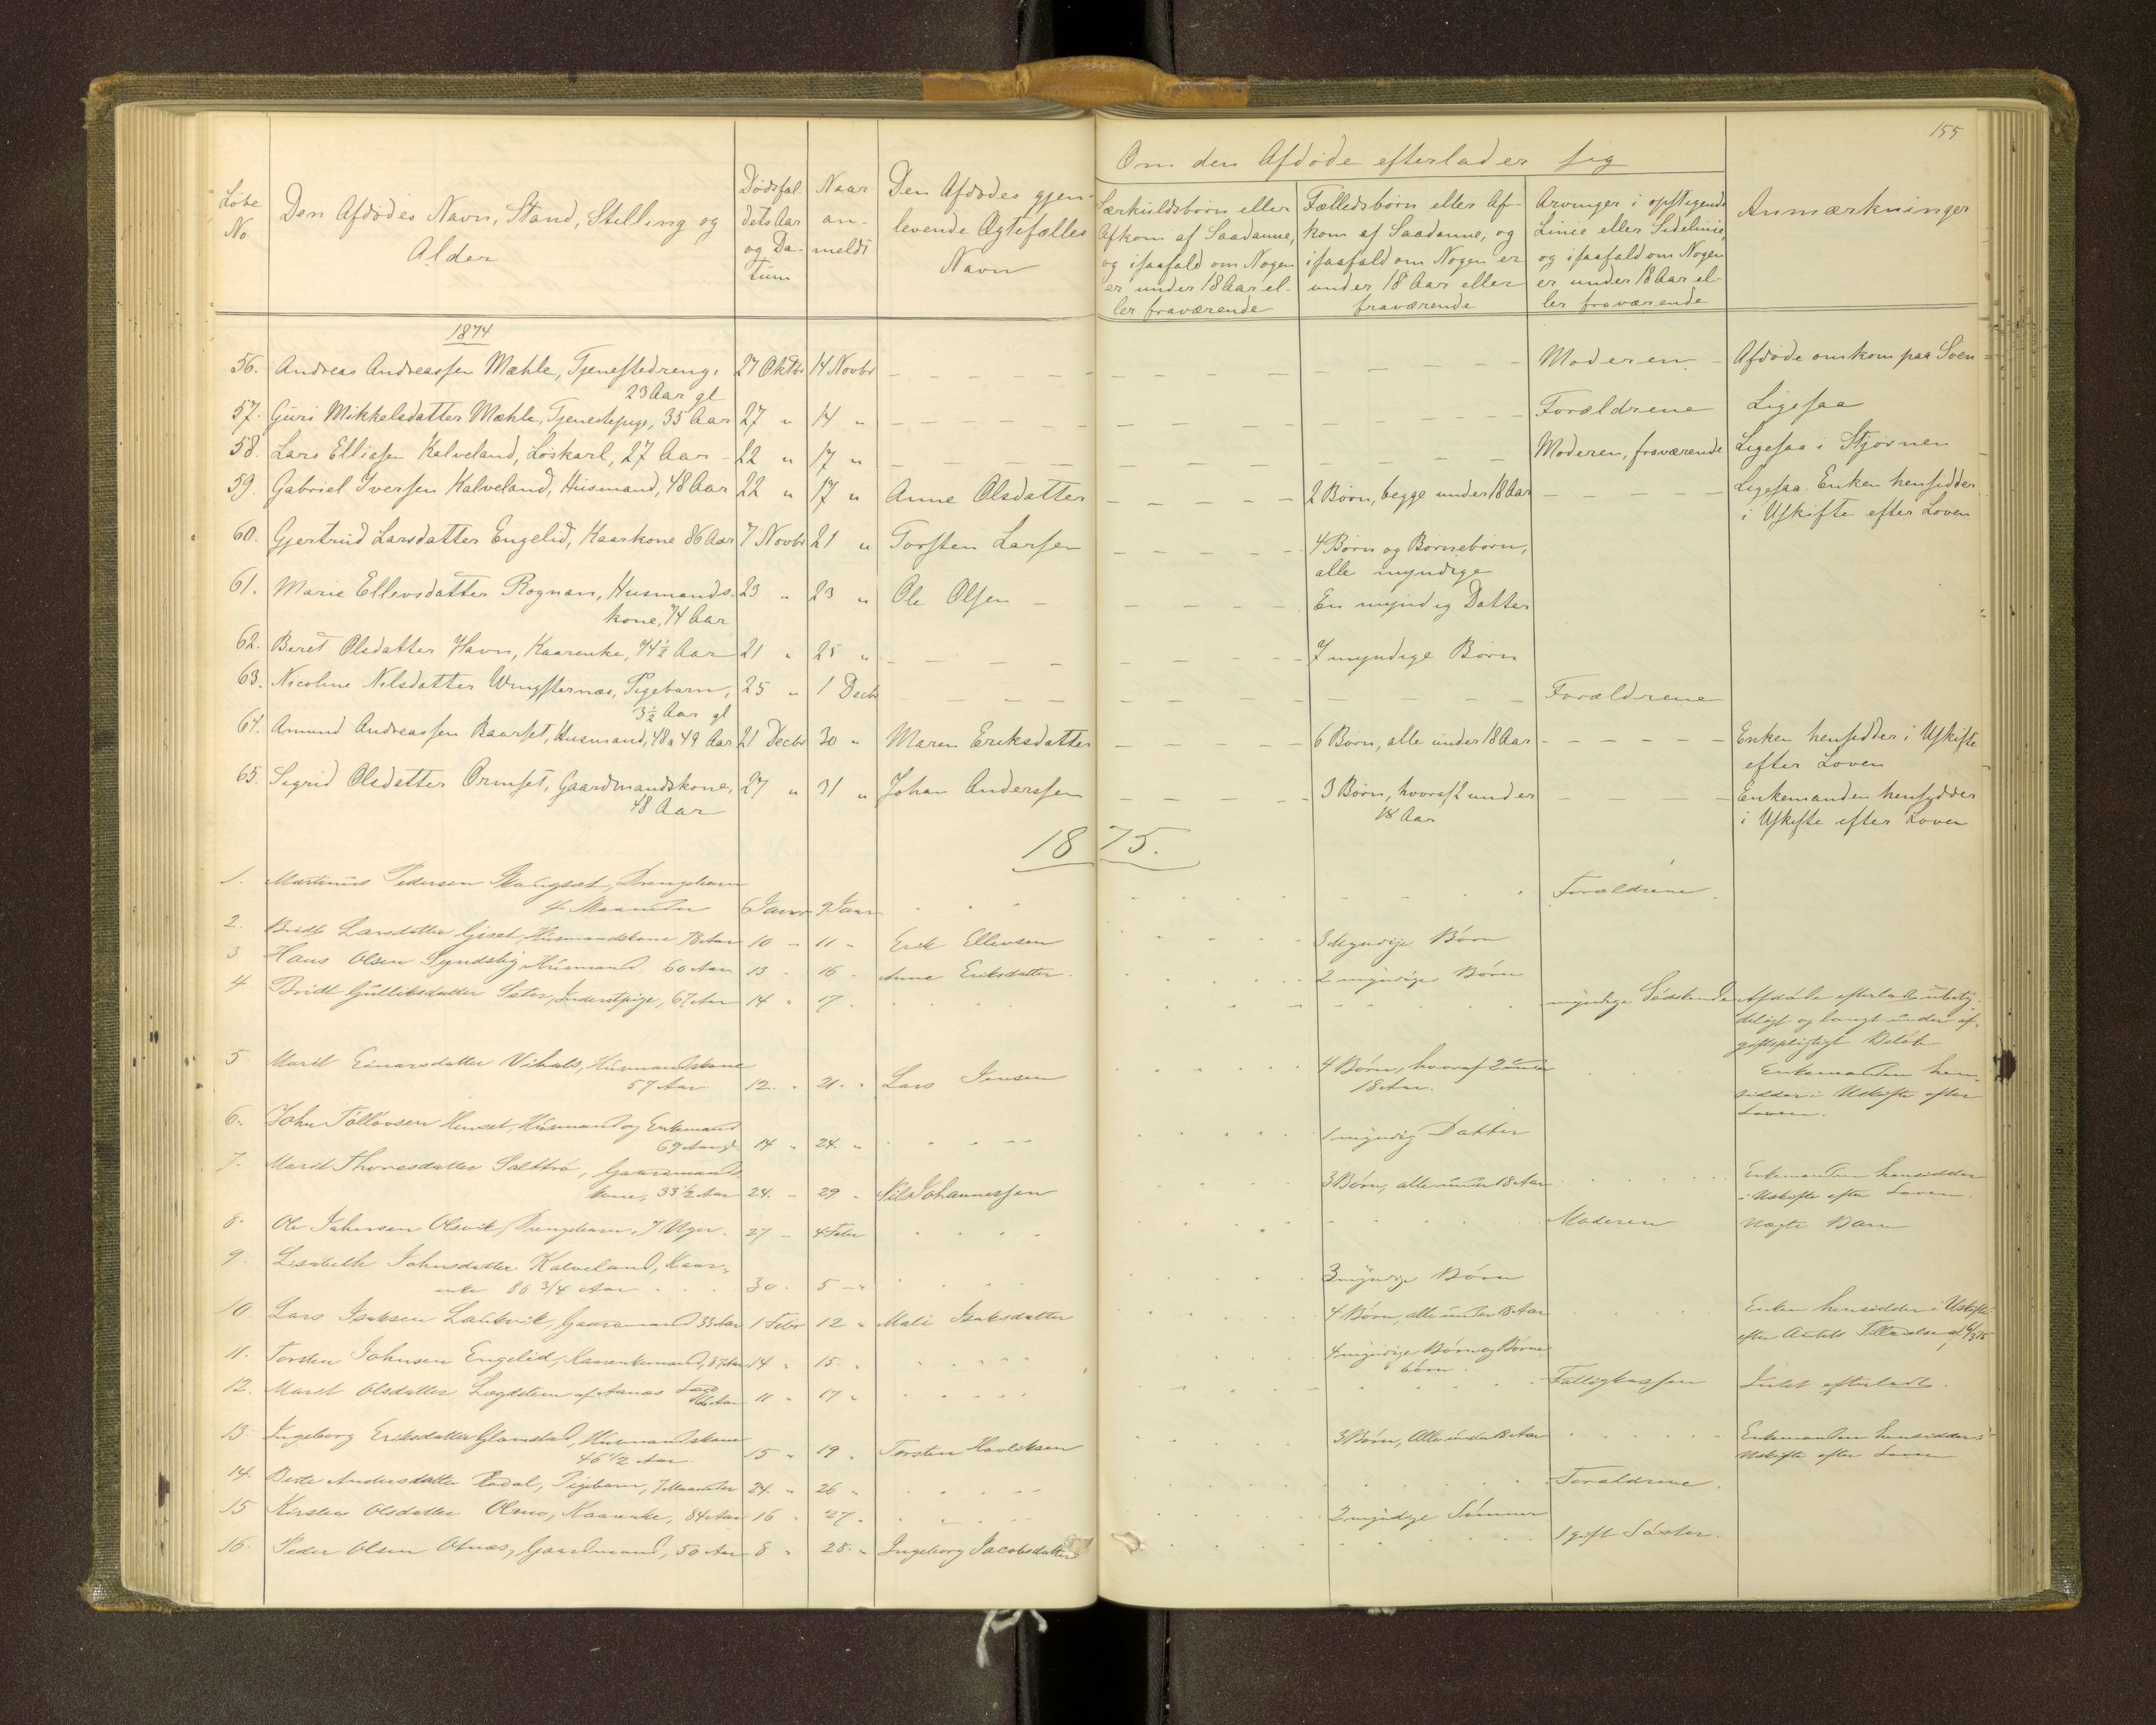 155
Løbe No | Den Afdødes Navn, Stand, Stilling og Alder | Dødsfaldets Aar og Datum | Naar anmeldt | Den Afdødes gjenlevende Ægtefælles Navn | Om den Afdøde efterlader sig | Særkuldsbørn eller Afkom af Saadanne, og isaafald om Nogen er under 18 Aar eller fraværende | Fællesbørn eller Afkom af Saadanne, og isaafald om Nogen er under 18 Aar eller fraværende | Arvinger i opstigende Linie eller Sidelinie, og isaafald om Nogen er under 18 Aar eller fraværende | Anmærkninger
1874
56. Andreas Andreassen Mæhle, Tjenestedreng, 23 Aar gl | 27 Oktbr | 14 Novbr | Moderen | Afdøde omkom paa Søen
57. Guri Mikkelsdatter Mæhle, Tjenestepige, 35 Aar | 27 " | 14 " | Forældrene | Ligesaa
58. Lars Elliasen Kalveland, Løskarl, 27 Aar | 22 " | 17 " | Moderen, fraværende | Ligesaa i Stjørnen
59. Gabriel Iversen Kalveland, Husmand, 48 Aar | 22 " | 17 " | Anne Olsdatter | 2 Børn, begge under 18 Aar | Ligesaa. Enken hensidder i Uskifte efter Loven
60. Gjertrud Larsdatter Engelid, Kaarkone 86 Aar | 7 Novbr | 21 " | Torsten Larsen | 4 Børn og Børnebørn, alle myndige
61. Marie Ellevsdatter Rognan, Husmandskone, 74 Aar | 23 " | 23 " | Ole Olsen | En myndig Datter
62. Beret Olsdatter Havn, Kaarenke, 74½ Aar | 21 " | 25 " | 7 myndige Børn
63. Nicoline Nilsdatter Pigebarn, 3½ Aar gl | 25 " | 1 Decbr | Forældrene
64. Amund Andreassen Baarset, Husmand, 48 a 49 Aar | 21 Decbr | 30 " | Maren Eriksdatter | 6 Børn, alle under 18 Aar | Enken hensidder i Uskifte efter Loven
65. Sigrid Olsdatter Ormset, Gaardmandskone, 48 Aar | 27 " | 31 " | Johan Anderssen | 3 Børn, hvoraf 2 under 18 Aar | Enkemanden hensidder i Uskifte efter Loven
1875.
1. Martinus Pedersen Skaugset, Drengebarn 4 Maaneder | 6 Januar | 9 Januar | Forældrene
2. Larsdatter Husmandskone 78 Aar | 10 " | 11 " | Erik Ellevsen | 3 Myndige Børn
3 Hans Olsen Husmand, 60 Aar | 13 " | 16 " | Anne Eriksdatter | 2 myndige Børn
4 Gulliksdatter Sæter, Inderstpige, 67 Aar | 14 " | 17 " | myndige Sødskende | Afdøde efterlod ubetydeligt og langt under afgiftspligtigt Beløb
5. Marit Einarsdatter Vihals, Husmandskone 57 Aar | 12 " | 21 " | Lars Jensen | 4 Børn, hvoraf 2 under 18 Aar. | Enkemanden hensidder i Uskifte efter Loven.
6. John Henset, Husmand og Enkemand 69 Aar gl | 14 " | 24 " | 1 myndig Datter
7. Marit Thoresdatter Saltrø, Gaardmandskone, 33½ Aar | 24 " | 29 " | Nils Johannessen | 3 Børn, alle under 18 Aar | Enkemanden hensidder i Uskifte efter Loven.
8. Ole Johnsen Olsvik, Drengebarn, 7 Uger. | 27 — | 4 Febr | Moderen | Uægte Barn
9. Lisabeth Johnsdatter Kalveland, Kaarenke 86 3/4 Aar | 30 | 5 — " | 3 myndige Børn
10. Lars Isaksen Laukvik, Gaardmand 33 Aar | 1 Febr | 12 " | Mali Isaksdatter | 4 Børn, alle under 18 Aar | Enken hensidder i Uskifte efter Amtets Tilladelse af 6/3 75
11. Torsten Johnsen Engelid, Kaarenkemand, 87 Aar | 14 " | 15 " | 4 myndige Børn og Børnebørn
12. Marit Olsdatter af Aunes | 11 " | 17 " | Fattigkassen | Intet efterladt.
13. Ingeborg Eriksdatter Glomstad, Husmandskone 46½ Aar | 15 " | 19 " | Torsten | 3 Børn, Alle under 18 Aar | Enkemanden hensidder i Uskifte efter Loven
14. Berte Andersdatter Rødal, Pigebarn, 7 Maaneder | 24 " | 26 " | Forældrene.
15 Kirsten Olsdatter Olmo, Kaarenke, 84 Aar | 16 " | 27 " | 2 myndige Sønner
16. Peder Olsen Gaardmand, 50 Aar | 8 " | 28 " | Ingeborg Jacobsdatter | 1 gift Søster.